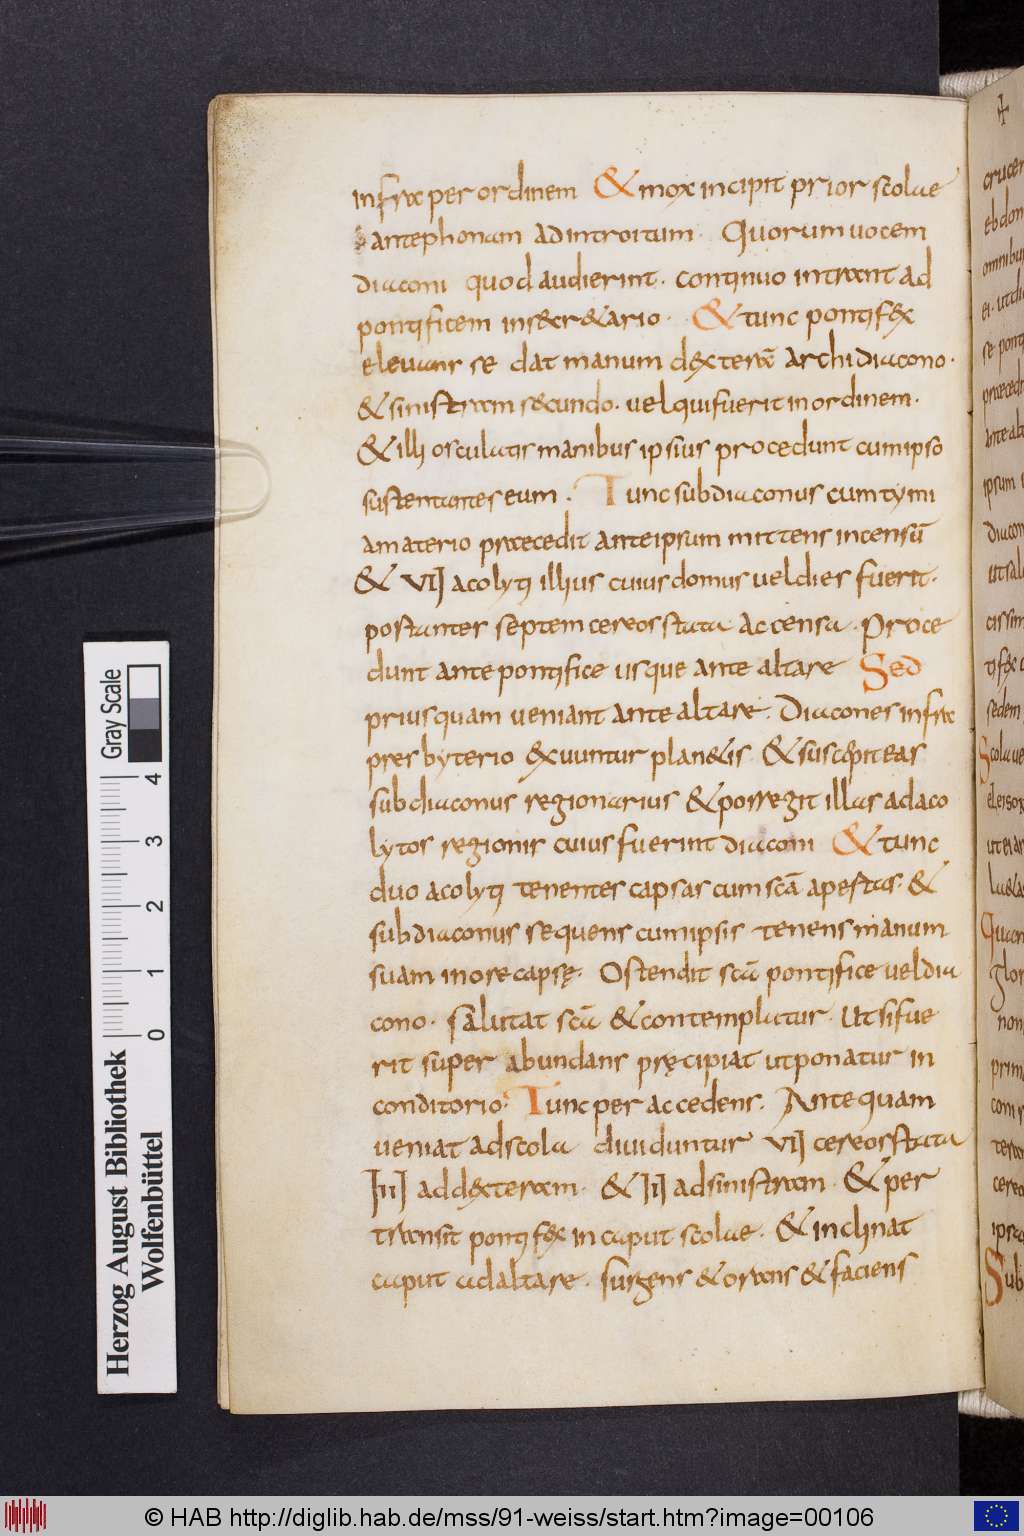 infra per ordinem & mox incipit prior scolae
antephonam ad introitum. Quorum uocem
diaconi quod audierint. continuo intrant ad
pontificem in secretario. & tunc pontifex
eleuans se dat manum dexterā archidiacono.
& sinistram secundo. uel qui fuerit in ordinem.
& illi osculatis manibus ipsius procedunt cum ipso
sustentantes eum. Tunc subdiaconus cum tymi
amaterio praecedit ante ipsum mittens incensū
& VII acolyti illius cuius domus uel dies fuerit.
postanter septem cereosstata accensa. Proce
dunt ante pontifice usque ante altare Sed
priusquam ueniant ante altare. Diacones infra
presbyterio exuuntur planetis & suscipit eas
subdiaconus regionarius & porregit illas ad aco
lytos regionis cuius fuerint diaconi & tunc
duo acolyti tenentes capsas cum scā apertas. &
subdiaconus sequens cum ipsis tenens manum
suam in ore capsę. Ostendit scā pontifice uel dia
cono. salutat scā & contemplatur. Ut si fue
rit super abundans pręcipiat ut ponatur in
conditorio. Tunc per accedens. Antequam
ueniat ad scola diuiduntur VII cereosstata
IIII ad dexteram. & III ad sinistram. & per
transit pontifex in caput scolae. & inclinat
caput ad altare. surgens & orans & faciens
Gray Scale
0 1 2 3 4
Herzog August Bibliothek
Wolfenbüttel
© HAB http://diglib.hab.de/mss/91-weiss/start.htm?image=00106